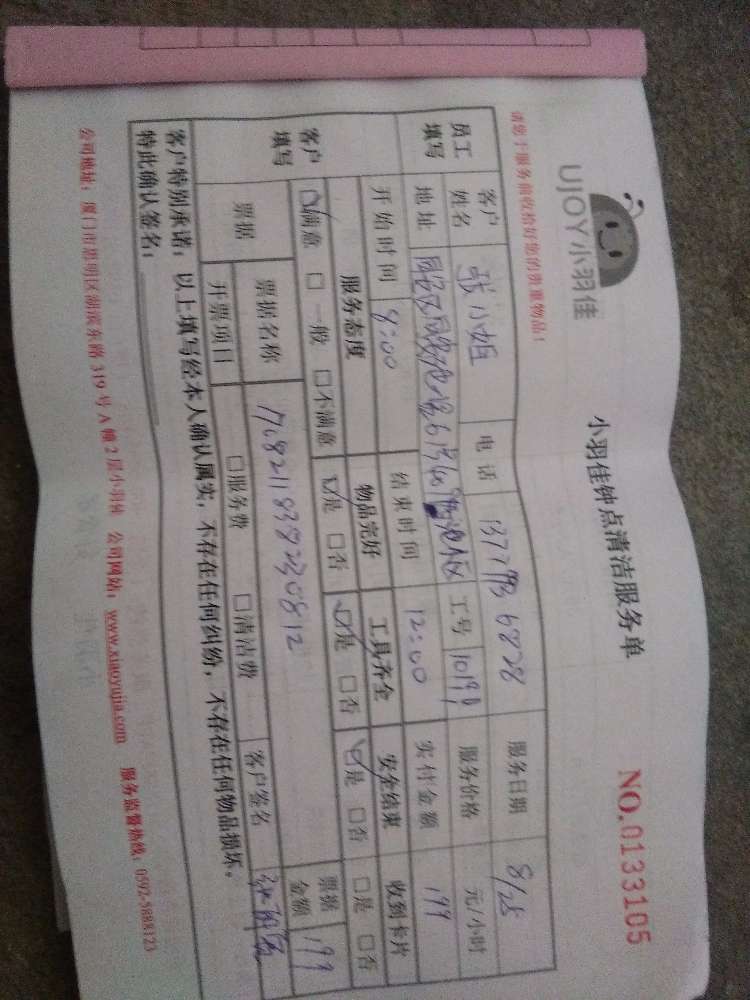 UJOY小羽佳
小羽佳钟点清洁服务单
NO.0133105
请您于服务前收拾好您的贵重物品!
员工填写 客户姓名 张小姐 电话 服务日期 8/25
地址 工号 服务价格 元/小时
客户填写 开始时间 8:00 结束时间 12:00 实付金额 199
服务态度 物品完好 工具齐全 安全结束 收到卡片
☑满意 □一般 □不满意 ☑是 □否 ☑是 □否 ☑是 □否 □是 □否
票据 票据名称 票据金额 199
开票项目 □服务费 □清洁费 客户签名
客户特别承诺:以上填写经本人确认属实,不存在任何纠纷,不存在任何物品损坏。
特此确认签名:
公司地址:厦门市思明区湖滨东路319号A幢2层小羽佳 公司网站:www.xiaoyujia.com 服务监督热线:0592-5888123